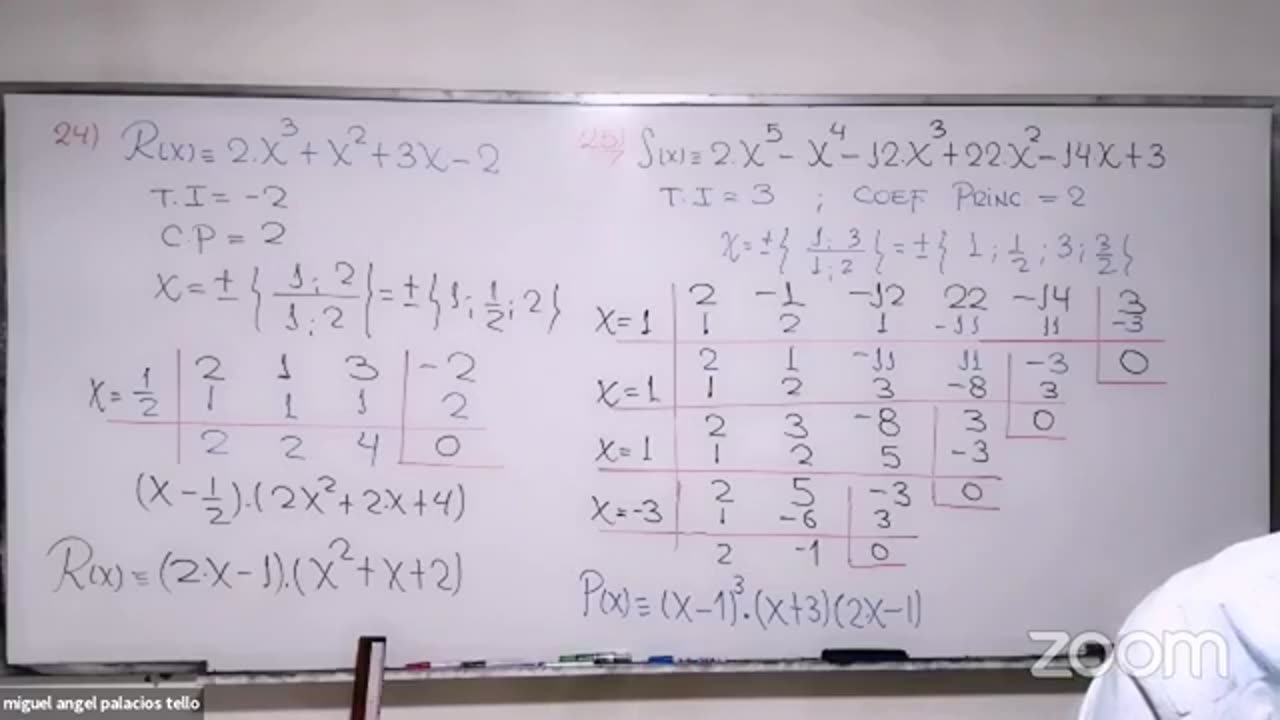 24) R(x) ≡ 2.x³ + x² + 3x - 2
T.I = -2
C.P = 2
x = ± { 1; 2 / 1; 2 } = ± { 1; 1/2; 2 }
x = 1/2 | 2 1 3 | -2
1 1 1 | 2
2 2 4 | 0
(x - 1/2).(2x² + 2.x + 4)
R(x) ≡ (2.x - 1).(x² + x + 2)
25) S(x) ≡ 2.x⁵ - x⁴ - 12.x³ + 22.x² - 14x + 3
T.I = 3 ; COEF PRINC = 2
x = ± { 1; 3 / 1; 2 } = ± { 1; 1/2; 3; 3/2 }
2 -1 -12 22 -14 | 3
x = 1 | 1 2 1 -11 11 | -3
2 1 -11 11 | -3 | 0
x = 1 | 1 2 3 -8 | 3
2 3 -8 | 3 | 0
x = 1 | 1 2 5 | -3
2 5 | -3 | 0
x = -3 | 1 -6 | 3
2 -1 | 0
P(x) ≡ (x-1)³.(x+3)(2x-1)
zoom
miguel angel palacios tello